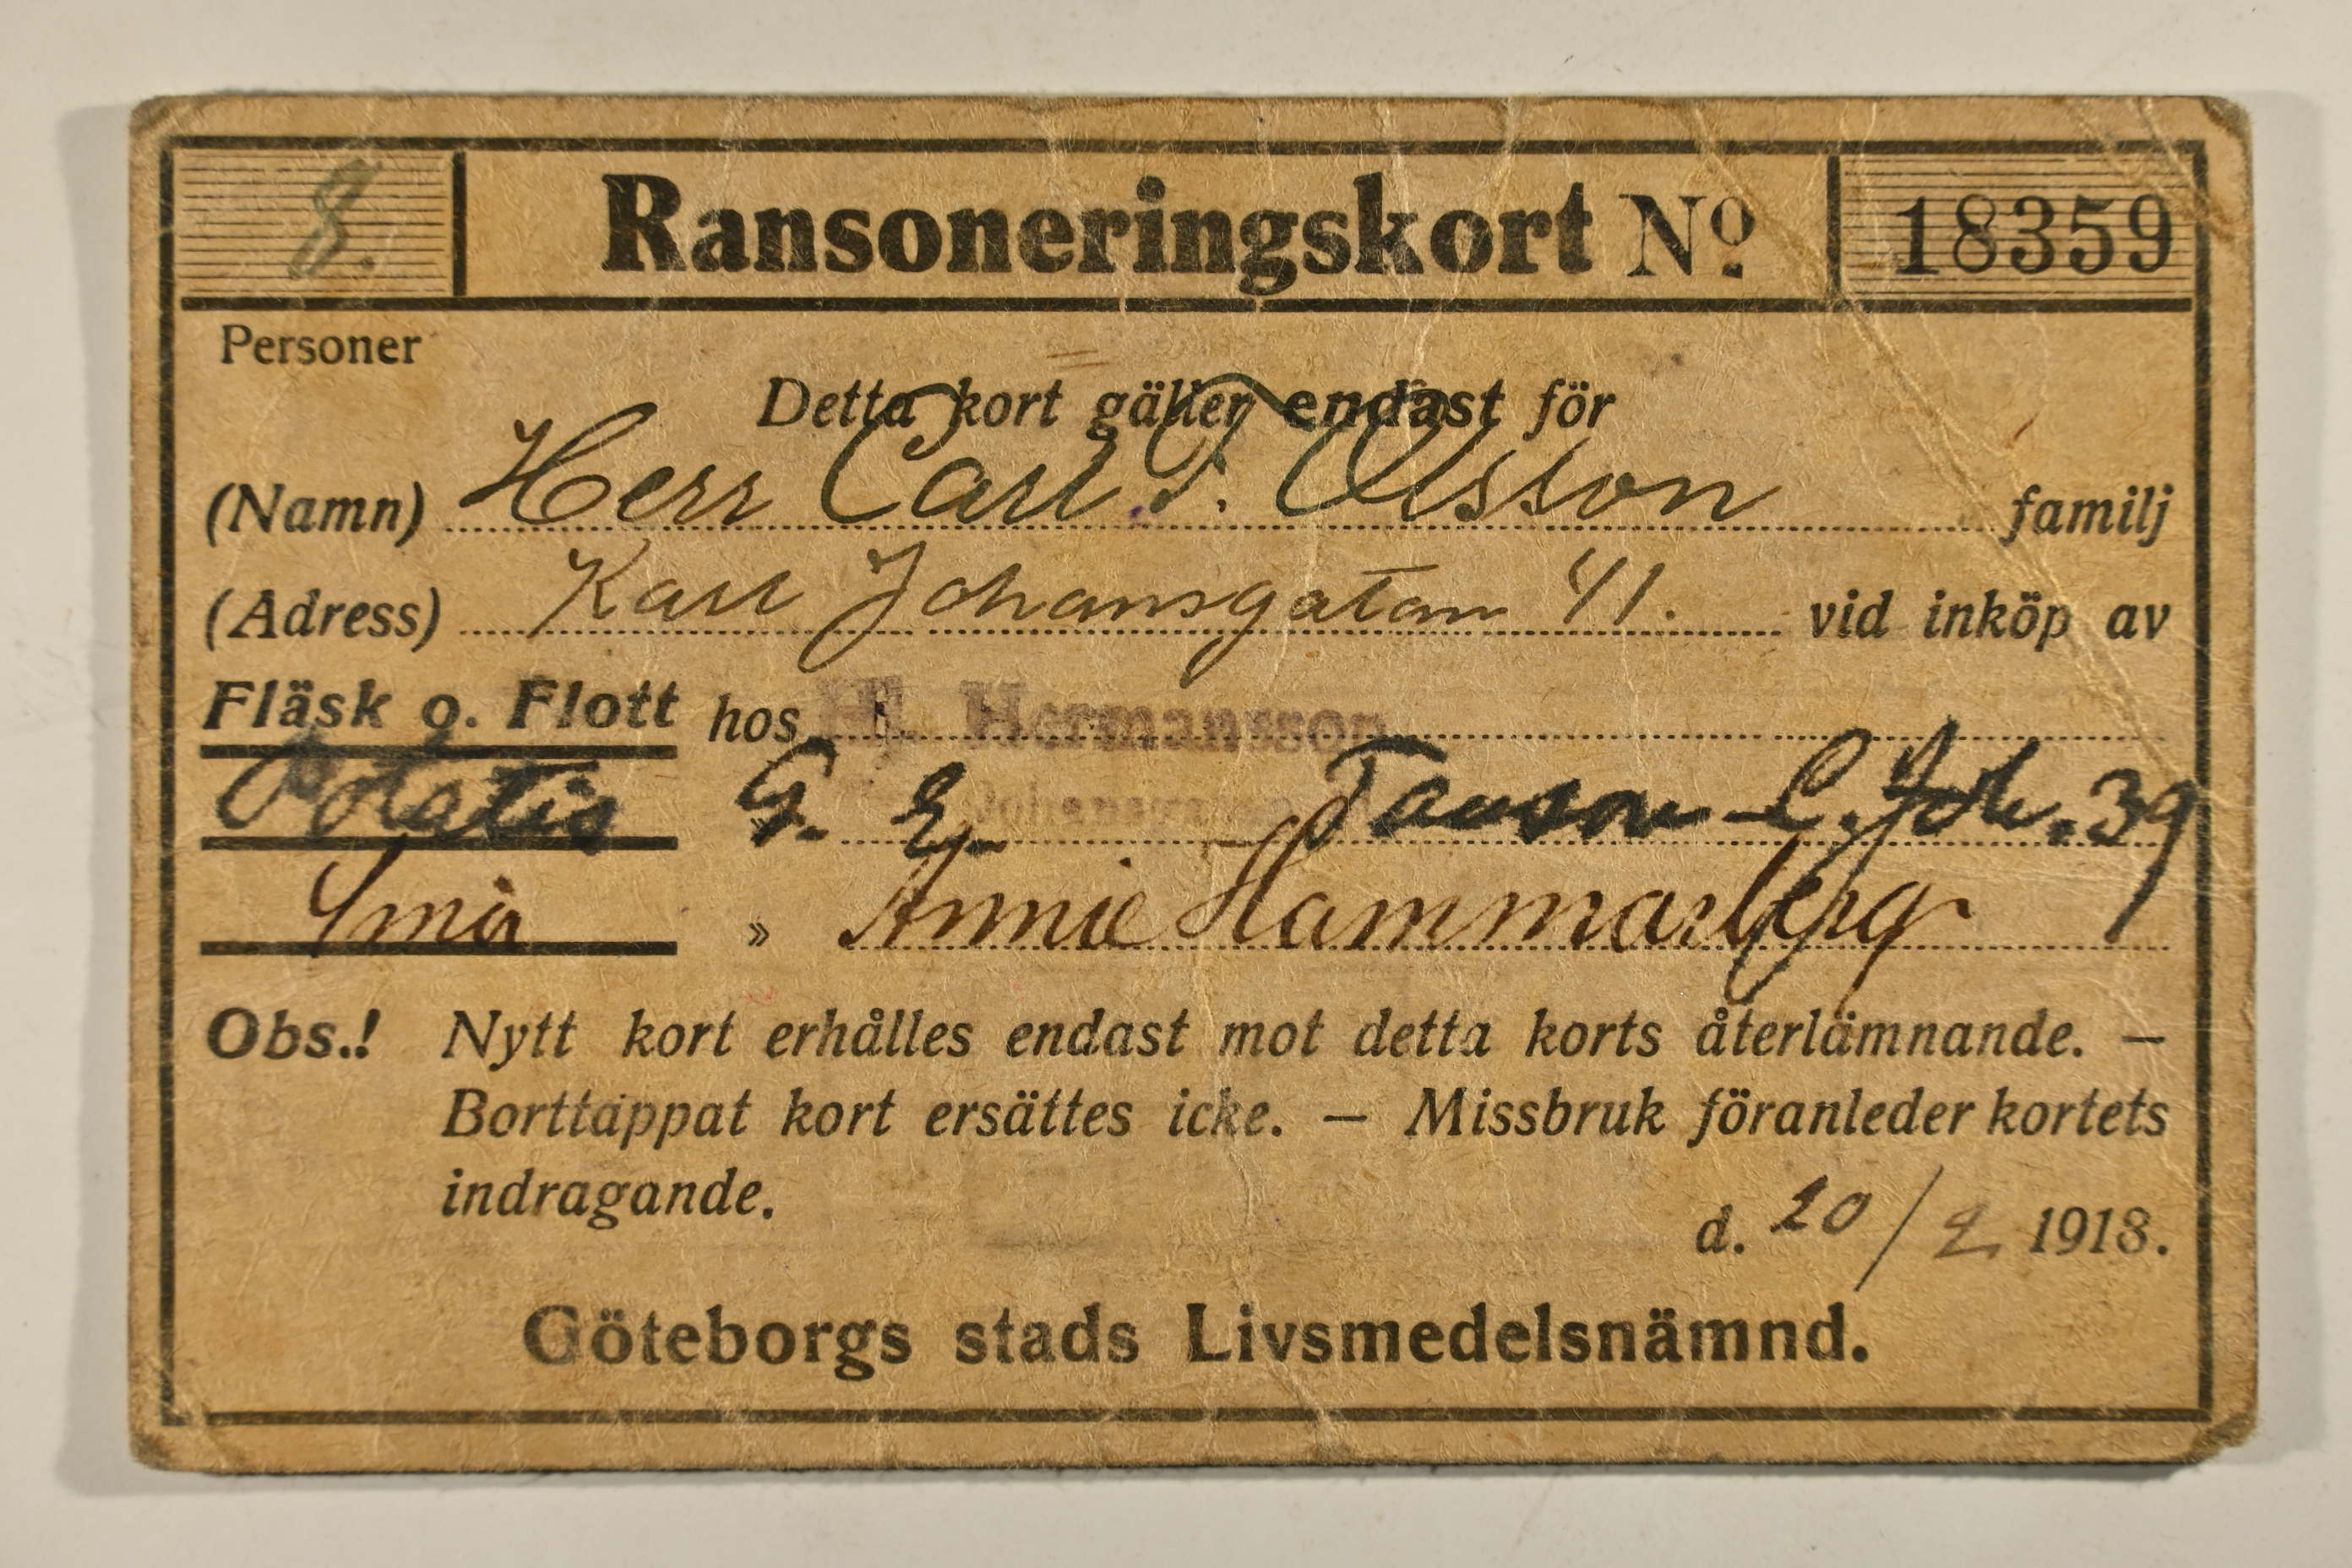 8. Ransoneringskort Nº 18359
Personer
Detta kort gäller endast för
(Namn) Herr Carl F. Olsson familj
(Adress) Karl Johansgatan 41. vid inköp av
Fläsk o. Flott hos Hj. Hermansson
Potatis G. E. C. Joh. 39
Smör » Annie Hammarberg
Obs.! Nytt kort erhålles endast mot detta korts återlämnande. —
Borttappat kort ersättes icke. — Missbruk föranleder kortets
indragande.
d. 20/2 1918.
Göteborgs stads Livsmedelsnämnd.